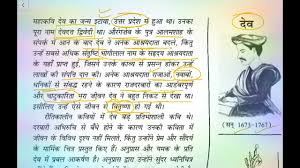 महाकवि देव का जन्म इटावा, उत्तर प्रदेश में हुआ था। उनका
पूरा नाम देवदत्त द्विवेदी था। औरंगजेब के पुत्र आलमशाह के
संपर्क में आने के बाद देव ने अनेक आश्रयदाता बदले, किंतु
उन्हें सबसे अधिक संतुष्टि भोगीलाल नाम के सहृदय आश्रयदाता
के यहाँ प्राप्त हुई, जिसने उनके काव्य से प्रसन्न होकर उन्हें
लाखों की संपत्ति दान की। अनेक आश्रयदाता राजाओं, नवाबों,
धनिकों से संबद्ध रहने के कारण राजदरबारों का आडंबरपूर्ण
और चाटुकारिता भरा जीवन देव ने बहुत निकट से देखा था।
इसीलिए उन्हें ऐसे जीवन से वितृष्णा हो गई थी।
रीतिकालीन कवियों में देव बड़े प्रतिभाशाली कवि थे।
दरबारी अभिरुचि से बँधे होने के कारण उनकी कविता में
जीवन के विविध दृश्य नहीं मिलते, किंतु उन्होंने प्रेम और सौंदर्य
के मार्मिक चित्र प्रस्तुत किए हैं। अनुप्रास और यमक के प्रति
देव में प्रबल आकर्षण है। अनुप्रास द्वारा उन्होंने सुंदर ध्वनिचित्र
देव
(सन् 1673-1767)